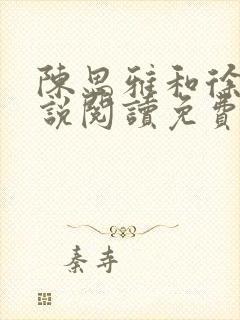 陳思雅和徐
說閱讀免費
秦寺